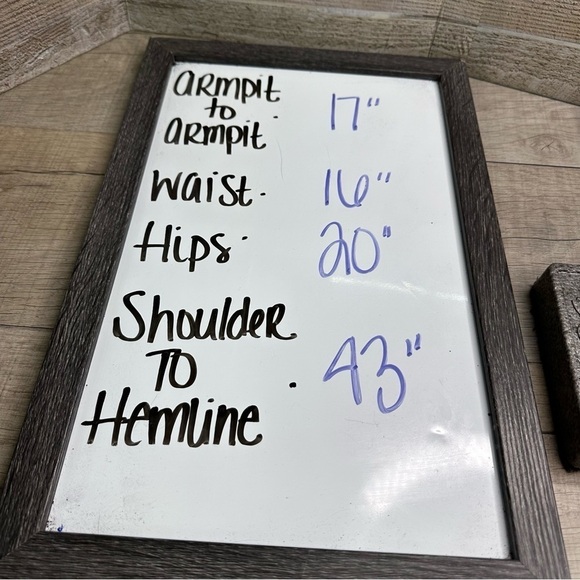 ARMPIT
to
ARMPIT. 17"
Waist. 16"
Hips. 20"
Shoulder
TO . 43"
Hemline